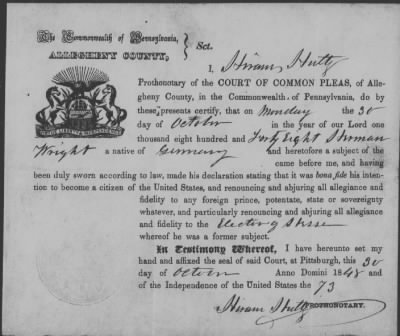 The Commonwealth of Pennsylvania,
ALLEGHENY COUNTY,
Sct.
I, Hiram Hultz
Prothonotary of the COURT OF COMMON PLEAS, of Alle-
gheny County, in the Commonwealth of Pennsylvania, do by
these presents certify, that on Monday the 30
day of October in the year of our Lord one
thousand eight hundred and Forty Eight Herman
Wright a native of Germany and heretofore a subject of the
came before me, and having
been duly sworn according to law, made his declaration stating that it was bona fide his inten-
tion to become a citizen of the United States, and renouncing and abjuring all allegiance
and fidelity to any foreign prince, potentate, state or sovereignty
whatever, and particularly renouncing and abjuring all allegiance
and fidelity to the Elector of Hesse
whereof he was a former subject.
In Testimony Whereof, I have hereunto set my
hand and affixed the seal of said Court, at Pittsburgh, this 30
day of October Anno Domini 1848 and
of the Independence of the United States the 73
Hiram Hultz PROTHONOTARY.
VIRTUE LIBERTY & INDEPENDENCE